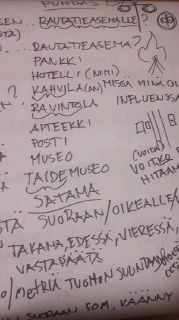 RAUTATIEASEMALLE?
RAUTATIEASEMA?
PANKKI
HOTELLI (NIMI)
? KAHVILA(AN) MISSÄ
RAVINTOLA
APTEEKKI
POSTI
MUSEO
TAIDEMUSEO
SATAMA
SUORAAN/OIKEALLE/
TAKANA, EDESSÄ, VIERESSÄ,
VASTAPÄÄTÄ
METRIÄ TUOHON SUUNTAAN
SUORAAN 50M. KÄÄNNY